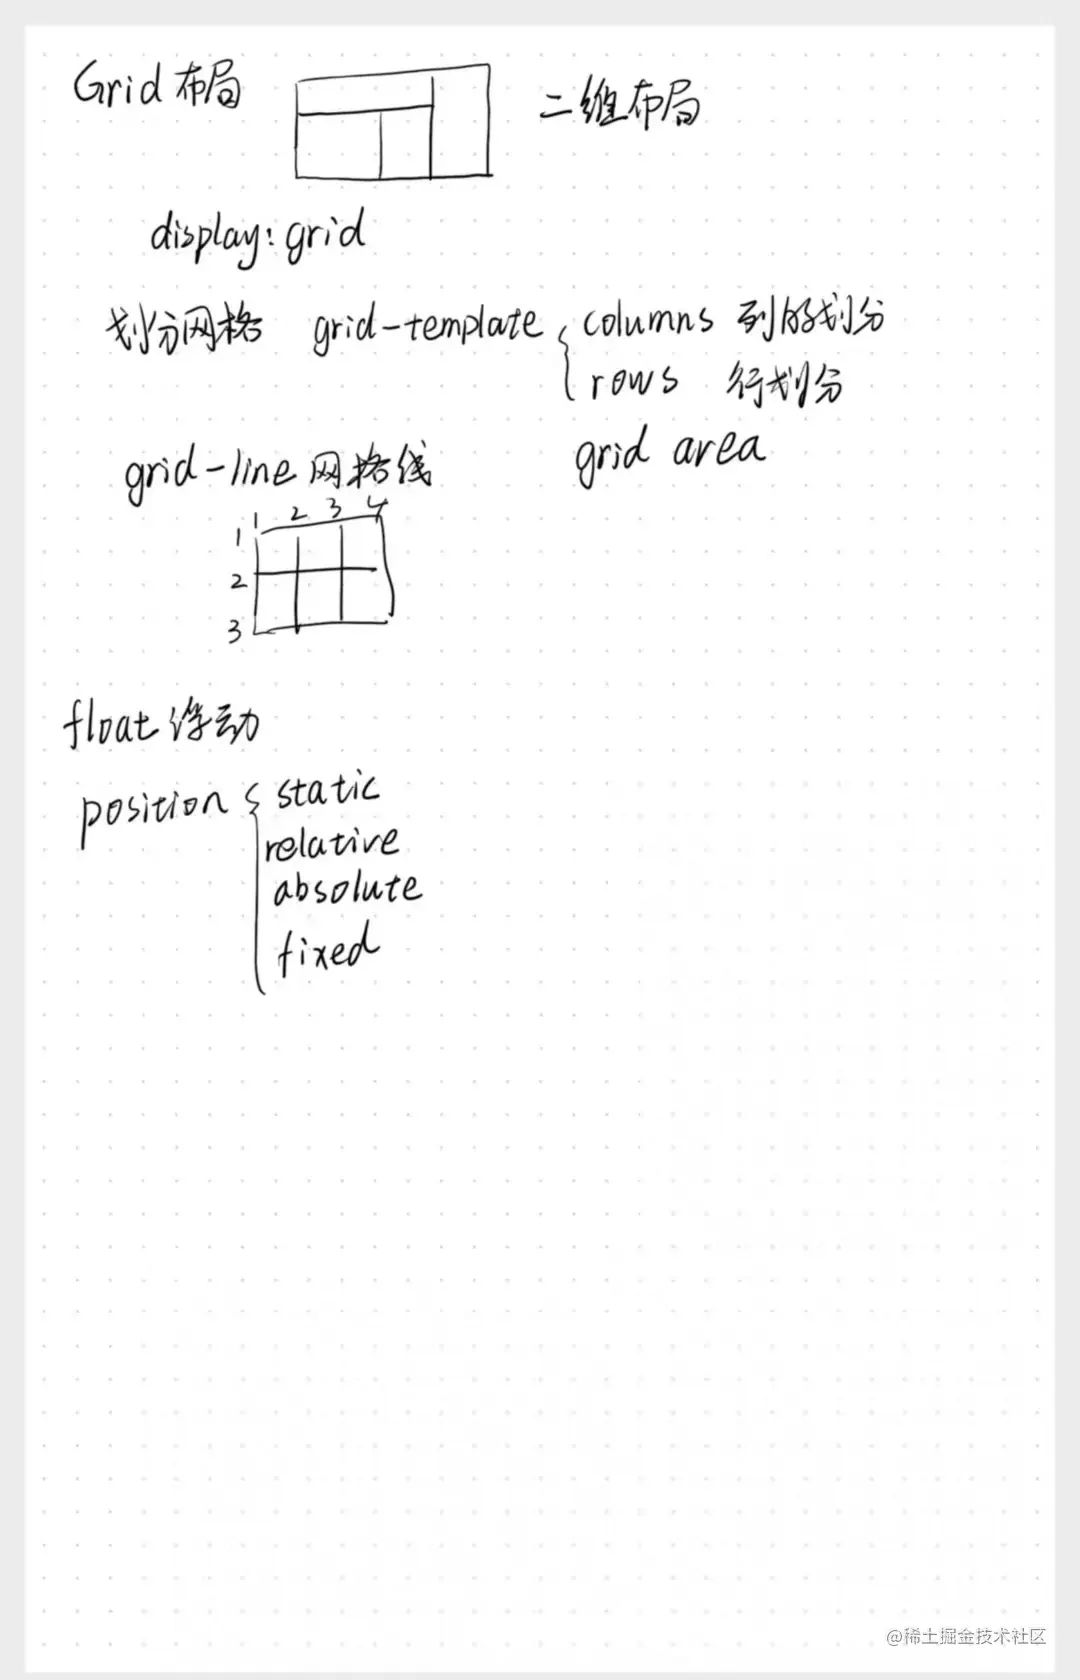 Grid 布局 二维布局
display: grid
划分网格 grid-template { columns 列的划分
rows 行划分
grid area
grid-line 网格线
1 2 3 4
1
2
3
float 浮动
position { static
relative
absolute
fixed
@稀土掘金技术社区